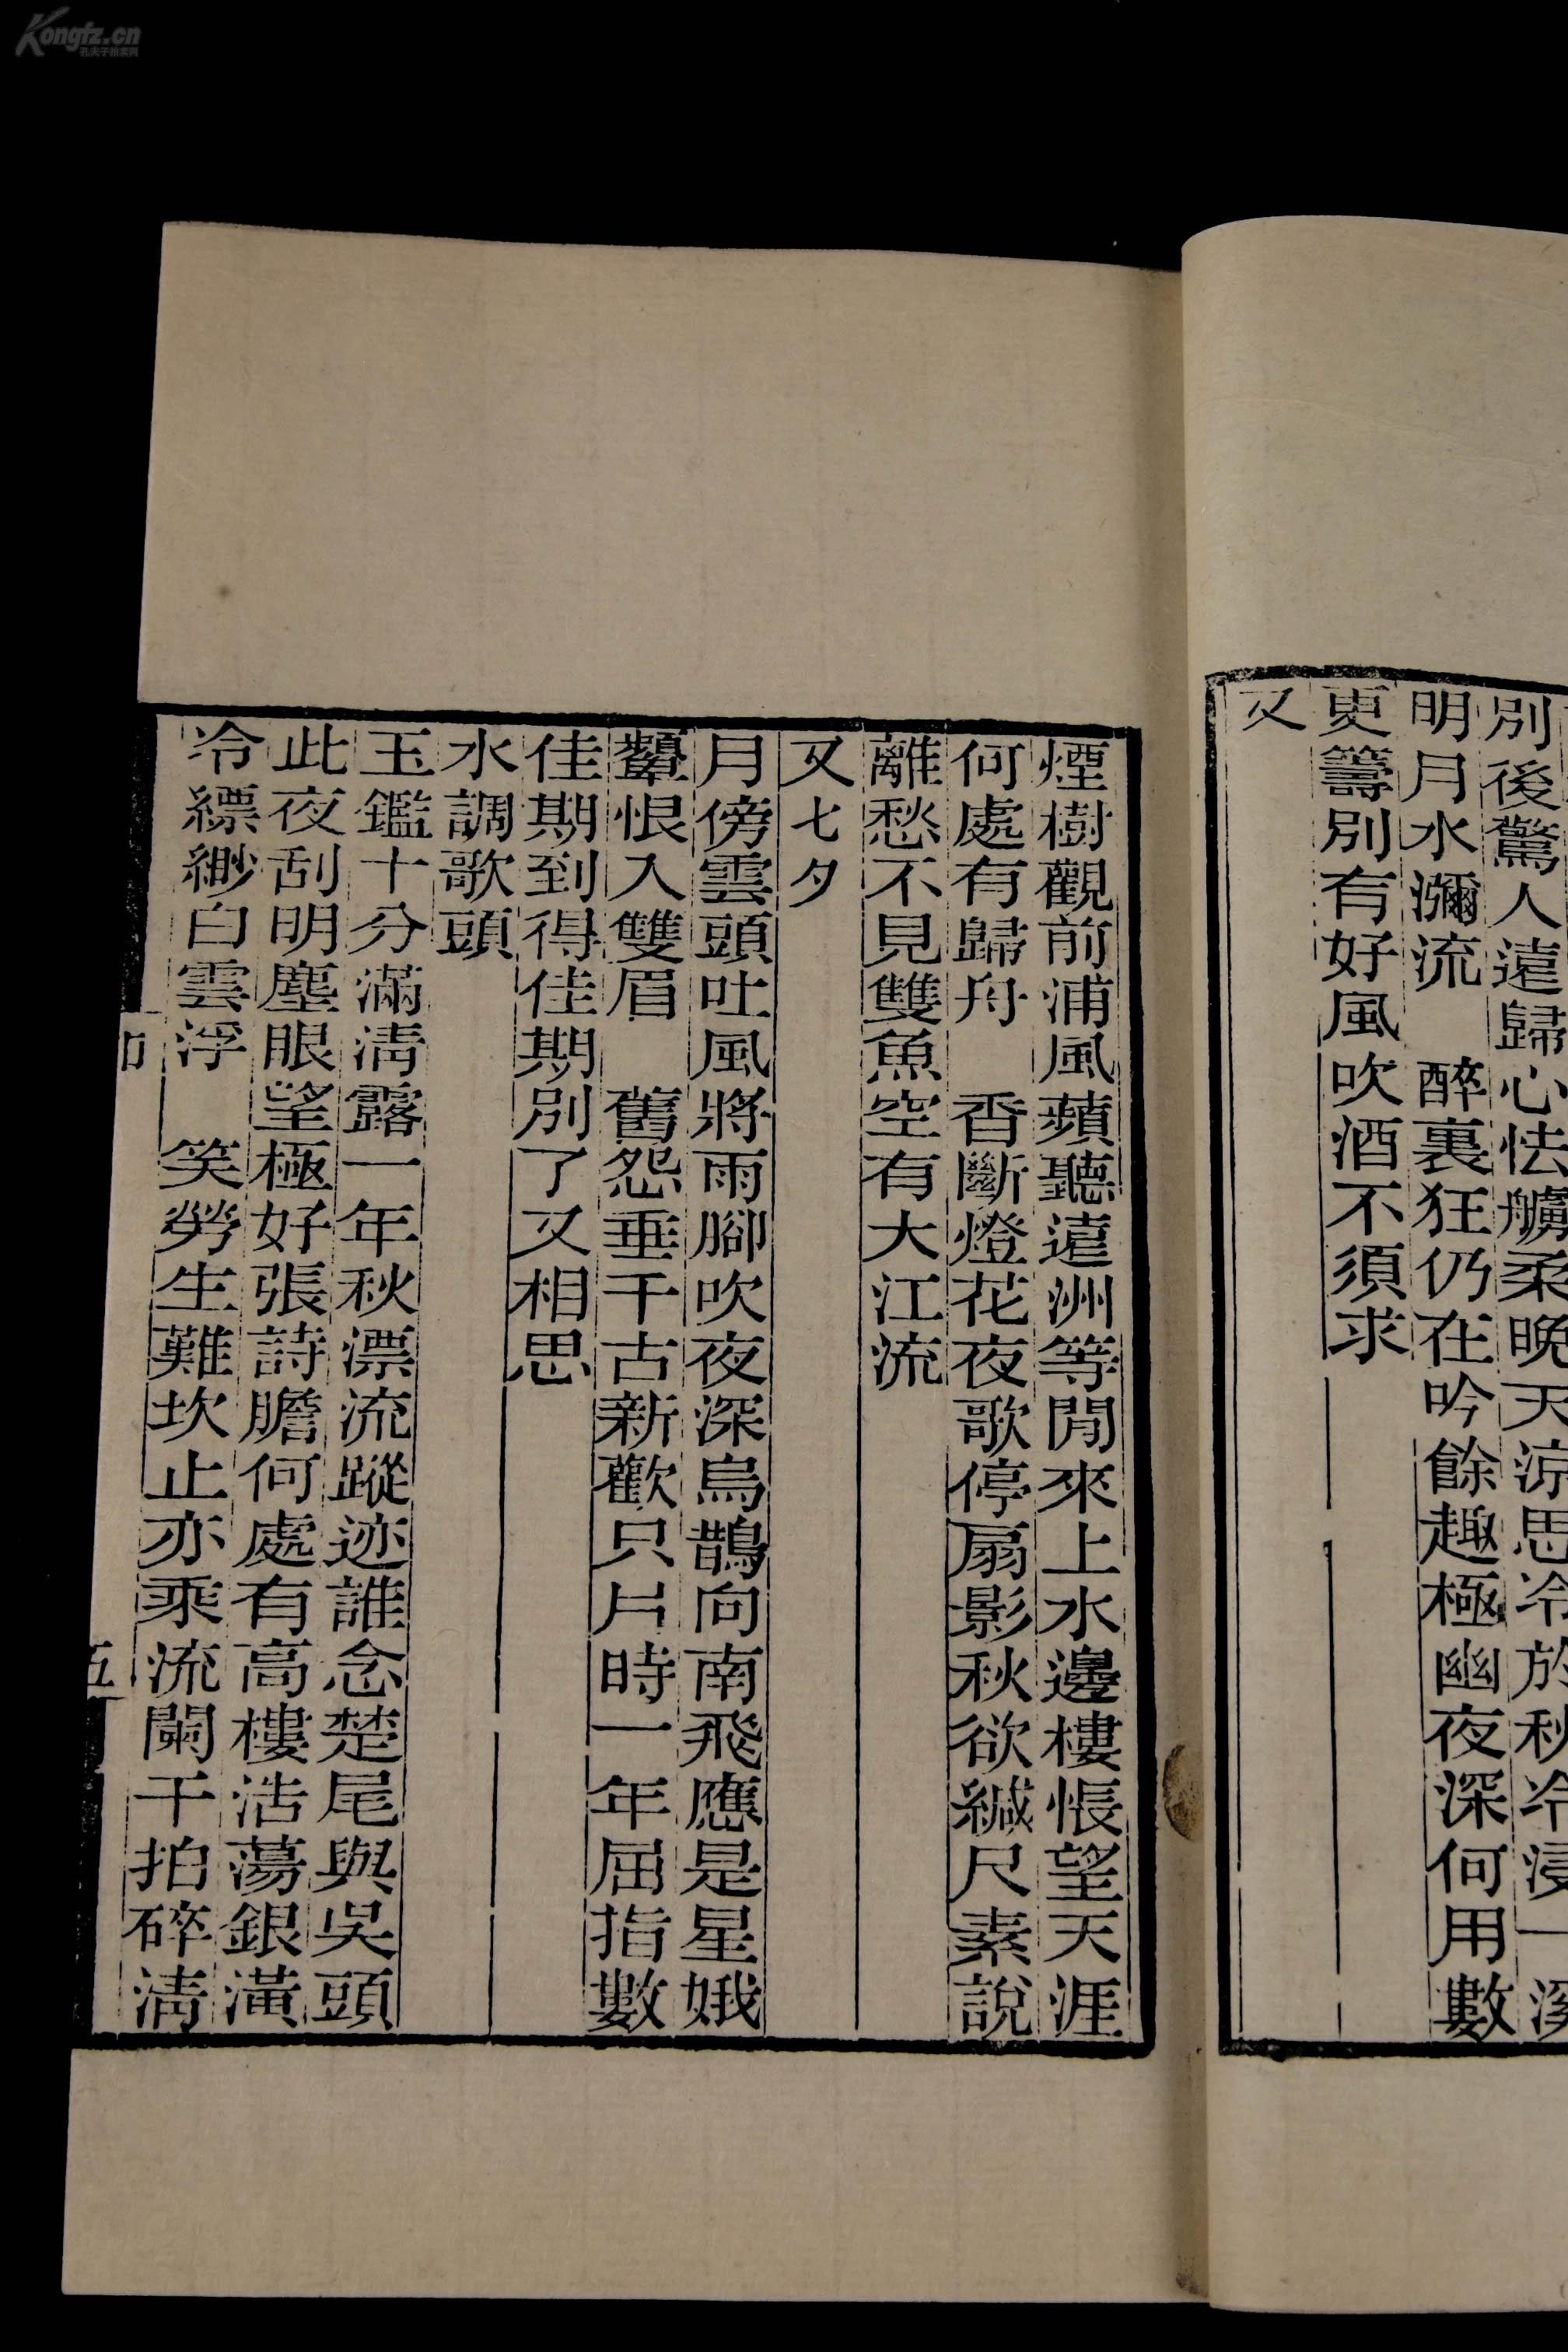 Kongfz.cn
孔夫子旧书网
別後驚人遠歸心怯艣柔晚天涼思冷於秋冷浸一溪
明月水瀰流　醉裏狂仍在吟餘趣極幽夜深何用數
更籌別有好風吹酒不須求
又
煙樹觀前浦風蘋聽遠洲等閒來上水邊樓悵望天涯
何處有歸舟　香斷燈花夜歌停扇影秋欲緘尺素說
離愁不見雙魚空有大江流
又七夕
月傍雲頭吐風將雨腳吹夜深烏鵲向南飛應是星娥
顰恨入雙眉　舊怨垂千古新歡只片時一年屈指數
佳期到得佳期別了又相思
水調歌頭
玉鑑十分滿清露一年秋漂流蹤迹誰念楚尾與吳頭
此夜刮明塵眼望極好張詩膽何處有高樓浩蕩銀潢
冷縹緲白雲浮　笑勞生難坎止亦乘流闌干拍碎清
五